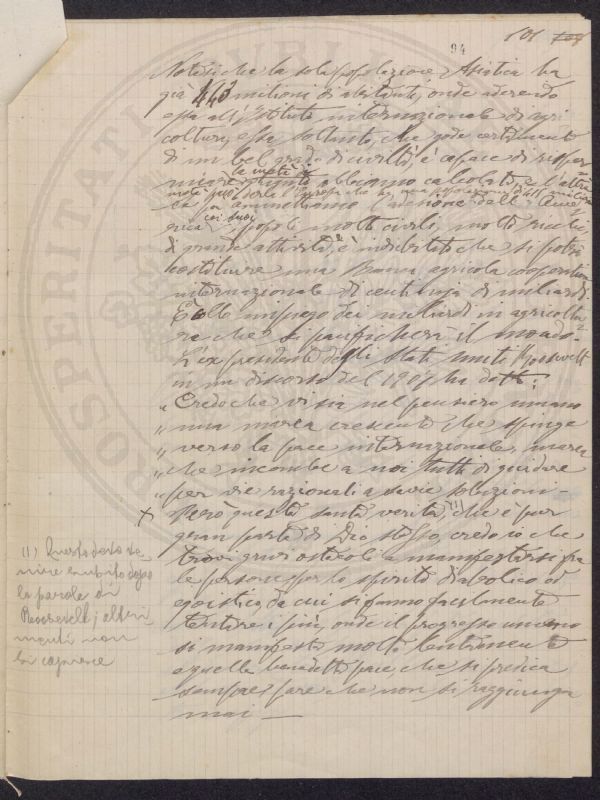 101 108
94
Notisi che la sola popolazione Asiatica ha
già 443 milioni di abitanti, onde aderendo
essa all'Istituto internazionale di agri
coltura, essa soltanto, che gode certamente
di un bel grado di civiltà, è capace di
la metà di
quanto abbiamo calcolato, e l'altra
per l'America
coi suoi
erica, popoli molto civili, molto ricchi,
di grande attività, è indubitato che si potrà
costituire una Banca agricola cooperativa
internazionale di centinaja di miliardi.
È collo impiego dei miliardi in agricoltu
ra che si pacificherà il mondo.
L'ex presidente degli Stati Uniti Roosevelt
in un discorso del 1907 ha detto:
„ Credo che vi sia nel pensiero umano
„ una marea crescente che spinge
„ verso la pace internazionale, marea
„ che incombe a noi tutti di guidare
„ per vie razionali a savie soluzioni —
Però questa santa verità, che è pur
gran parte di Dio stesso, credo io che
trovi gravi ostacoli a manifestarsi fra
le persone per lo spirito diabolico od
egoistico, da cui si fanno facilmente
tentare i più, onde il progresso umano
si manifesta molto lentamente
e quella benedetta pace, che si predica
sempre, pare che non si raggiunga
mai —
(1) Questo deve ve
nire subito dopo
le parole di
Roosevelt; altri
menti non
si capisce
ROSPERITATI